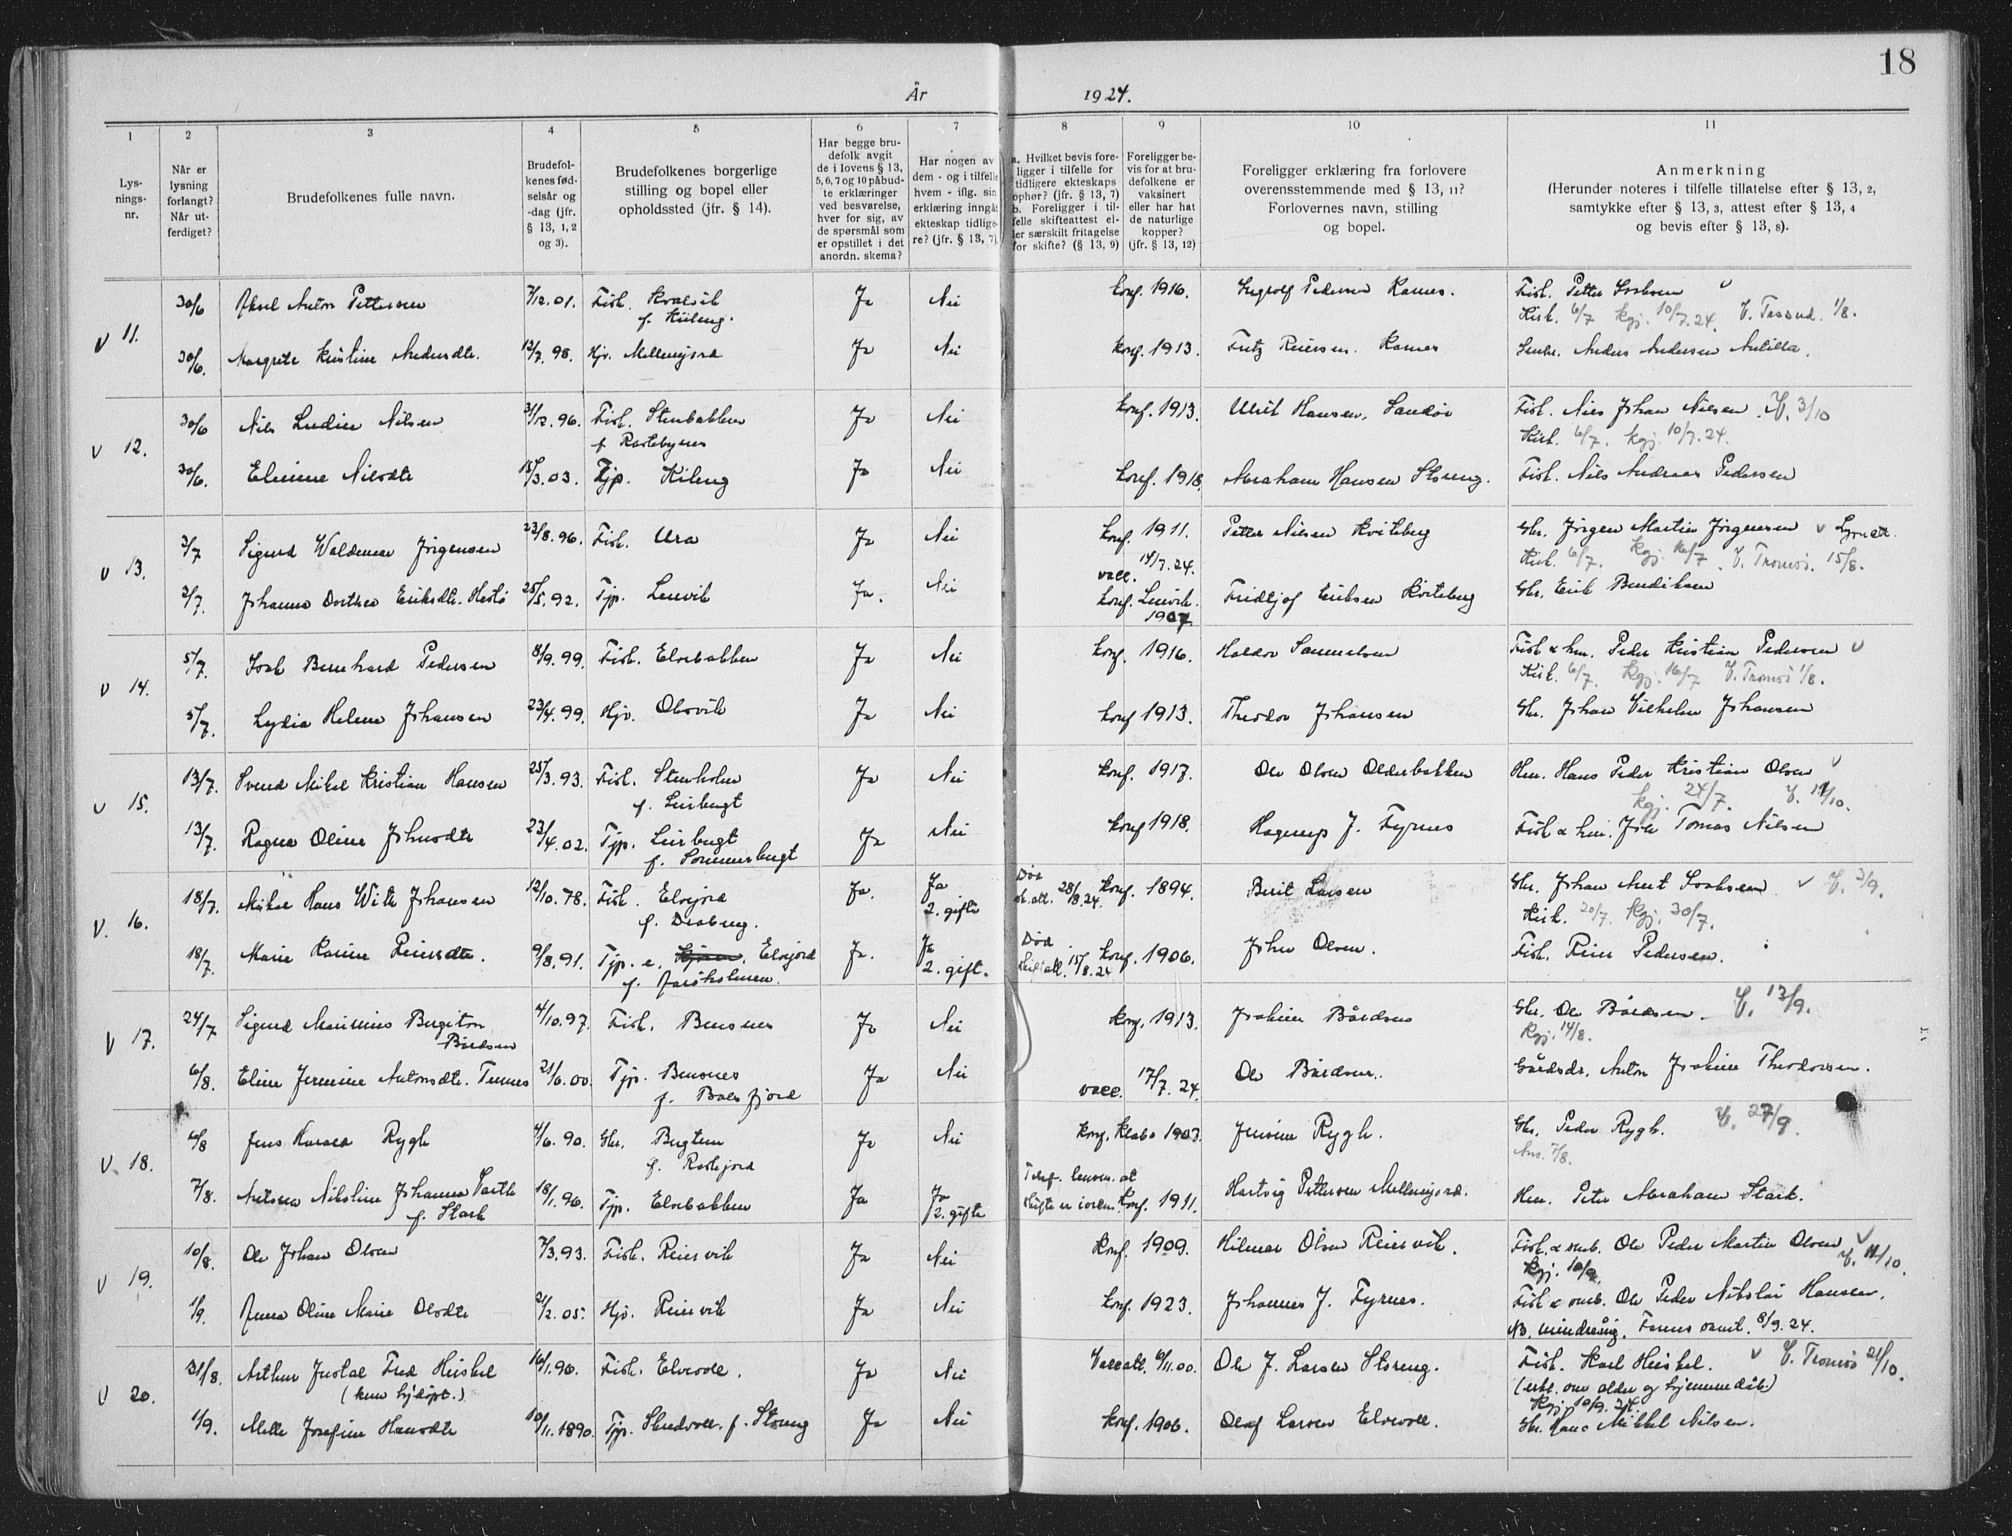 18
År 1924.
1 2 3 4 5 6 7 8 9 10 11
Lys-
nings-
nr.
Når er
lysning
forlangt?
Når ut-
ferdiget?
Brudefolkenes fulle navn.
Brudefol-
kenes fød-
selsår og
-dag (jfr.
§ 13, 1, 2
og 3).
Brudefolkenes borgerlige
stilling og bopel eller
opholdssted (jfr. § 14).
Har begge bru-
defolk avgit
de i lovens § 13,
5, 6, 7 og 10 påbud-
te erklæringer
ved besvarelse,
hver for sig, av
de spørsmål som
er opstillet i det
anordn. skema?
Har nogen av
dem - og i tilfelle
hvem - iflg. sin
erklæring inngåt
ekteskap tidlige-
re? (jfr. § 13, 7).
a. Hvilket bevis fore-
ligger i tilfelle for
tidligere ekteskaps
ophør? (jfr. § 13, 7)
b. Foreligger i til-
felle skifteattest el-
ler særskilt fritagelse
for skifte? (§ 13, 9)
Foreligger be-
vis for at bru-
defolkene er
vaksinert
eller har hat
de naturlige
kopper?
(jfr. § 13, 12)
Foreligger erklæring fra forlovere
overensstemmende med § 13, 11?
Forlovernes navn, stilling
og bopel.
Anmerkning
(Herunder noteres i tilfelle tillatelse efter § 13, 2,
samtykke efter § 13, 3, attest efter § 13, 4
og bevis efter § 13, 8).
v 11. 30/6 Aksel Anton Pettersen 7/12.01. Fisk. Kvalvik Ja Nei konf. 1916. Ingvolf Pedersen Ramnes. Fisk. Petter
f. Kileng. Kirk. 6/7 kgj. 10/7.24. V. 1/8.
30/6. Margrete Kristine Andersdtr. 12/7.98. Hjv. Mellemjord Ja Nei konf. 1913. Fritz Reiersen. Ramnes Anders Andersen Antilla.
v 12. 30/6 Nils Ludvik Nilsen 31/12.96. Fisk. Stenbakken Ja Nei konf. 1913. Ulrik Hansen, Sandør Fisk. Nils Johan Nilsen. V. 3/10
f. Rastebynes Kirk. 6/7. kgj. 10/7.24.
30/6. Elvine Nilsdtr 15/3.03. Tjp. Kileng Ja Nei konf. 1918. Abraham Hansen Storeng. Fisk. Nils Andreas Pedersen
v 13. 2/7 Sigurd Waldemar Jørgensen 23/8.96. Fisk. Ura Ja Nei konf. 1911. Petter Nilsen Kviteberg Gbr. Jørgen Martin Jørgensen v
vacc. 14/7.24. Kirk. 6/7. kgj. 16/7. V. Tromsø. 15/8.
2/7. Johanna Dorthea Eriksdtr. Hestø 25/5.92. Tjp. Lenvik Ja. Nei konf. Lenvik. Fridtjof Eriksen Kviteberg Gbr. Erik Bendiksen
1907
v 14. 5/7. Isak Bernhard Pedersen 8/9.99. Fisk. Elvebakken Ja Nei konf. 1916. Haldor Samuelsen Fisk & hm. Peder Kristian Pedersen v
Kirk. 6/7. kgj. 16/7 V. Tromsø 1/8.
5/7. Lydia Helene Johansen 23/4.99. Hjv. Olsvik Ja Nei konf 1913. Theodor Johansen Gbr. Johan Vilhelm Johansen
v 15. 13/7. Svend Mikal Kristian Hansen 25/3.93. Fisk. Stenholm Ja Nei konf. 1917. Ole Olsen Olderbakken Hm. Hans Peder Kristian Olsen v
f. Leirbugt kgj. 24/7. V. 11/10.
13/7. Ragna Oline Johnsdtr 23/4.02. Tjp. Leirbugt Ja Nei konf 1918. Hagerup J. Fyrnes Fisk & hm. John Tomas Nilsen
f. Sommerbugt
v. 16. 18/7. Mikal Hans With Johansen 12/10.78. Fisk. Elvejord Ja. Ja Død konf. 1894. Berit Larsen Gbr. Johan Arnt Isaksen v V. 2/9.
f. Diabeng. 2. gifte sk.att. 28/8.24. Kirk. 20/7. kgj. 30/7.
18/7. Marie Karine Reiersdtr. 9/8.91. Tjp. e. Elvejord Ja. Ja Død konf. 1906. John Olsen. Fisk. Reier Pedersen.
2. gift. 15/8.24
v 17. 24/7 Sigurd Maurinus Bergiton 4/10.97. Fisk. Bensnes Ja Nei konf. 1913. Joakim Bårdsen Gbr. Ole Bårdsen. V. 13/9.
Bårdsen Kgj. 14/8.
6/8. Eline Jensine Antonsdtr. Tennes 21/6.00. Tjp. Bensnes Ja Nei vacc. 17/7.24. Ole Bårdsen. Gårdsbr. Anton Joakim Theodorsen.
f. Balsfjord
v 18. 6/8 Jens Rygh 4/6.90. Gbr. Bugten Ja Nei konf. Klæbo 1903. Jensine Rygh. Gbr. Peder Rygh. V. 27/9.
f. Rastefjord 7/8.
7/8. Nikoline Johanna 18/1.96. Tjp. Elvebakken Ja Ja konf. 1911. Hartvig Pettersen Mellemjord. Hm. Peter Abraham Stark.
f. Stark 2. gifte Telef. lensm. at skifte er iorden.
v 19. 10/8. Ole Johan Olsen 7/3.93. Fisk. Reiervik Ja Nei konf. 1909. Hilmar Olsen Reiervik. Fisk. & småb. Ole Peder Martin Olsen v
kgj. 10/9. V. 11/10.
1/9. Anna Oline Marie Olsdtr 21/2.05. Hjv. Reiervik Ja Nei konf. 1923. Johannes J. Fyrnes. Fisk & småb. Ole Peder Nikolai Hansen.
NB. mindreårig. Farens samt. 8/9.24.
v 20. 31/8. Arthur Justal Fred Heiskel 16/1.96. Fisk. Elvevoll. Ja Nei Vacc.att. 6/11.00. Ole J. Larsen Storeng. Fisk. Karl Heiskel. v V. Tromsø 21/10.
(kun hjdøpt.) (erkl. om alder og hjemmedåb)
kgj. 10/9.24.
1/9. Melle Josefine Hansdtr 10/11.1890. Tjp. Skudvoll. f. Storeng Ja Nei konf. 1906. Olaf Larsen Elvevoll. Gbr. Hans Mikkel Nilsen.